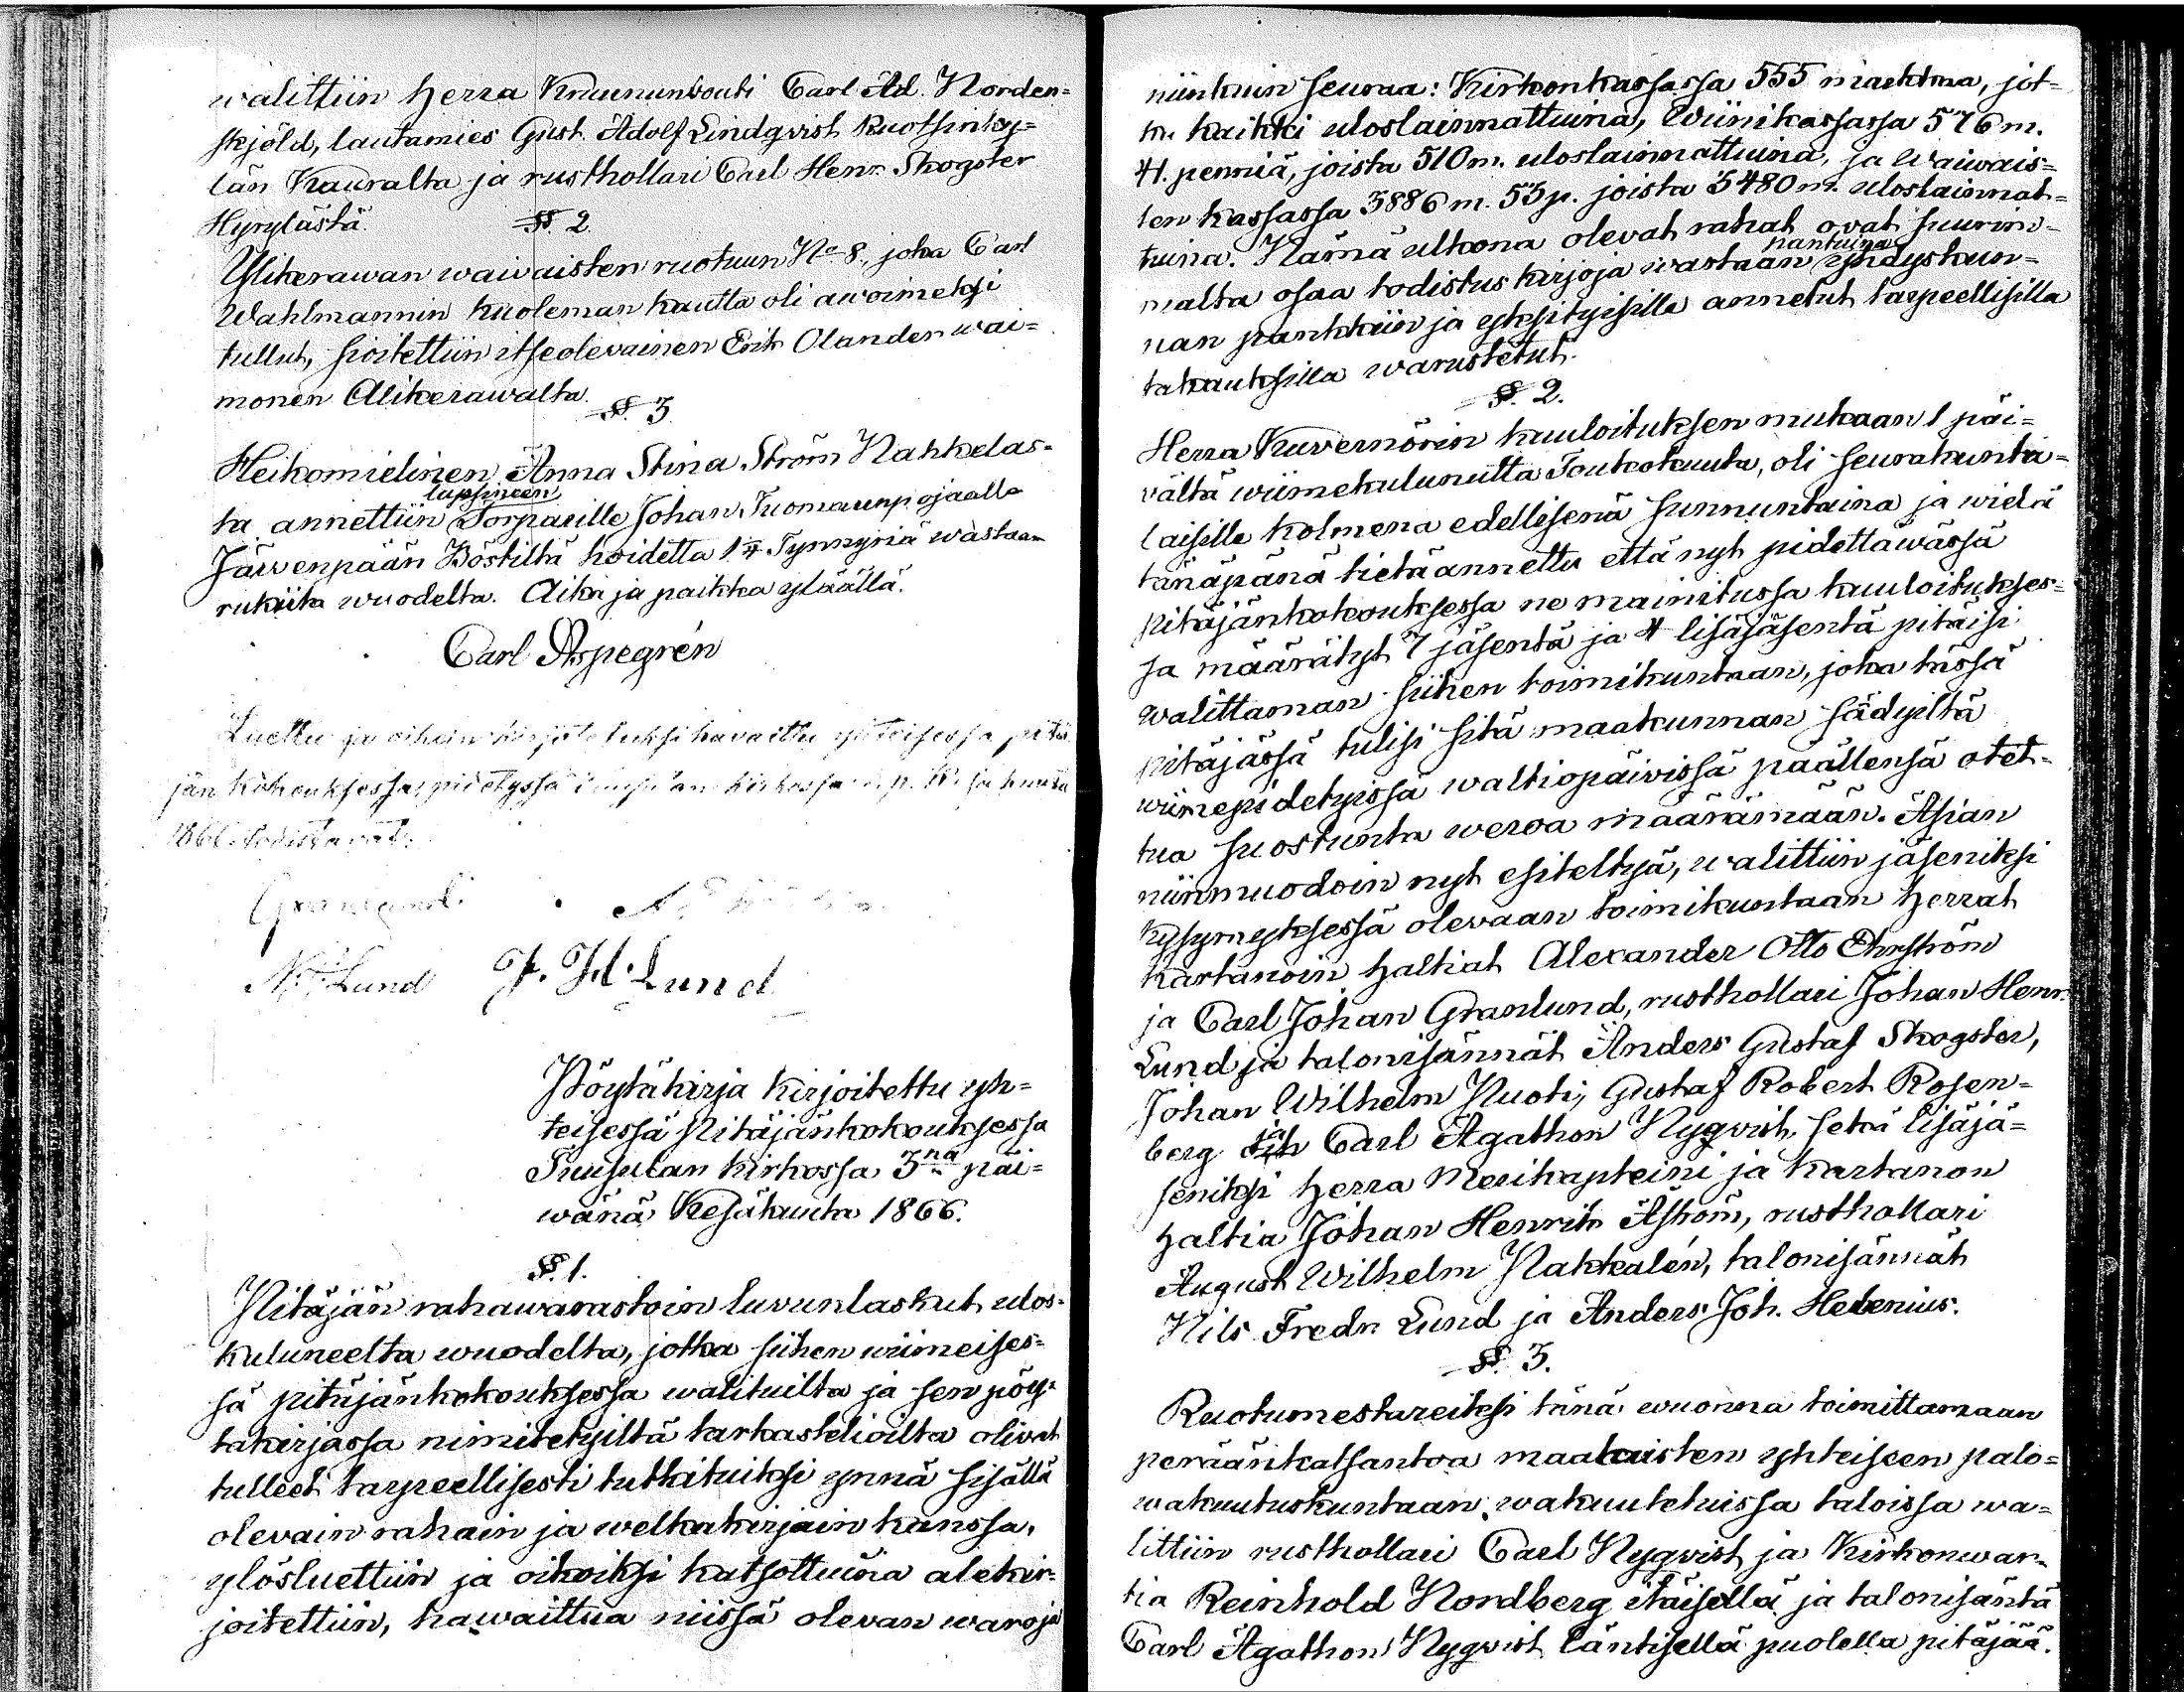 walittiin herra Kruununvouti Carl Ad. Norden=
skjöld, lautamies Gust. Adolf Lindqvist Ruotsinky=
län Kauralta ja rusthollari Carl Henr. Skogster
Hyrylästä.
§§ 2.
Ylikerawan waiwaisten ruotuun No 8., joka Carl
Wahlmannin kuoleman kautta oli awoimeksi
tullut, sioitettiin itseolevainen Erik Olander wai=
monen Alikerawalta.
§§. 3
Heikomielinen Anna Stina Ström Nahkelas=
ta annettiin lapsineen Torpparille Johan Tuomaanpojaalle
Järvenpään Böstiltä hoidetta 1 1/4 Tynnyriä wastaan
rukiita wuodelta. Aika ja paikka ylläällä.
Carl Aspegrén
Luettu ja oikein kirjoitetuksi havaittu yhteisessä pitä
jän kokouksessa, pidetyssä Tuusulan kirkossa
1866. todistavat:
Granlund.
N. F. Lund J. H. Lund
Pöytäkirja kirjoitettu yh=
teisessä Pitäjänkokouksessa
Tuusulan kirkossa 3na päi=
wänä Kesäkuuta 1866.
§§. 1.
Pitäjän rahawarastoin luvunlaskut ulos=
kuluneelta wuodelta, jotka siihen wiimeises=
sä pitäjänkokouksessa walituilta ja sen pöy=
täkirjassa nimitetyiltä tarkastelioilta olivat
tulleet tarpeellisesti tutkituiksi ynnä sisällä
olevain rahain ja welkakirjain kanssa,
ylösluettiin ja oikeiksi katsottuina alekir=
joitettiin, hawaittua niissä olevan waroja
niinkuin seuraa: Kirkonkassassa 555 markkaa, jot=
ka kaikki uloslainnattuina, Wiinikassassa 576 m.
41. penniä, joista 510 m. uloslainnattuina, ja Waiwais=
ten kassassa 3886 m. 53 p. joista 3480 m. uloslainnat=
tuina. Nämä ulkona olevat rahat ovat suurim=
malta osaa todistuskirjoja wastaan pantuina Yhdyskun=
nan pankkiin ja yksityisille annetut tarpeellisilla
takauksilla warustetut.
§§. 2.
Herra Kuvernörin kuuloituksen mukaan 1 päi=
vältä wiimekulunutta Toukokuuta, oli seurakunta=
laisille kolmena edellisenä sunnuntaina ja wielä
tänäpänä tietäannettu että nyt pidettäwässä
pitäjänkokouksessa ne mainitussa kuuloitukses=
sa määrätyt 7 jäsentä ja 4 lisäjäsentä pitäisi
walittaman siihen toimikuntaan, joka tässä
pitäjässä tulisi sitä maakunnan säädyiltä
wiimepidetyissä waltiopäivissä päällensä otet=
tua suostunta weroa määräämään. Asian
niinmuodoin nyt esiteltyä, walittiin jäseniksi
kysymyksessä olevaan toimikuntaan herrat
kartanoin haltiat Alexander Otto Ehrström
ja Carl Johan Granlund, rusthollari Johan Henr.
Lund ja talonisännät Anders Gustaf Skogster,
Johan Wilhelm Ruoti, Gustaf Robert Rosen=
berg ja Carl Agathon Nygvist, sekä lisäjä=
seniksi herra Merikapteini ja kartanon
haltia Johan Henrik Åström, rusthollari
August Wilhelm Nakkalén, talonisännät
Nils Fredr. Lund ja Anders Joh. Helenius.
§§. 3.
Ruotumestareiksi tänä wuonna toimittamaan
perään katsantoa maalaisten yhteiseen palo=
wakuutuskuntaan wakuutetuissa taloissa wa=
littiin rusthollari Carl Nyqvist ja Kirkonwar=
tia Reinhold Nordberg itäisellä ja talonisäntä
Carl Agathon Nygvist läntisellä puolella pitäjää.